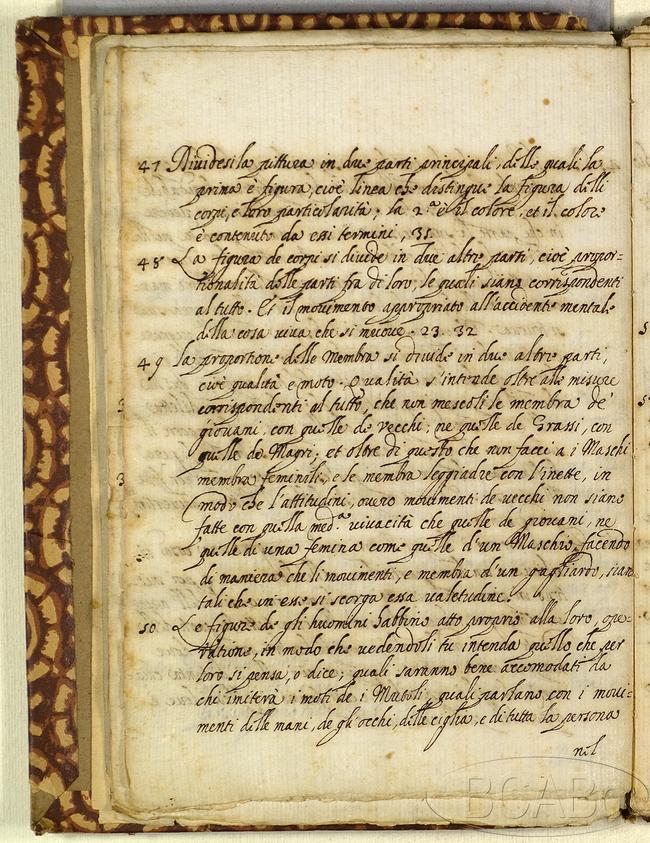 47 Dividesi la pittura in due parti principali, delle quali la
prima è figura, cioè linea che distingue la figura delli
corpi, e loro particolarità; la 2.ª è il colore, et il colore
è contenuto da essi termini, 31.
48 La figura de corpi si divide in due altre parti, cioè propor=
tionalità delle parti fra di loro, le quali siano corrispondenti
al tutto. Et il movimento appropriato all'accidente mentale
della cosa viva che si muove. 23. 32
49 la proportione delle Membra si divide in due altre parti,
cioè qualità e moto. Qualità s'intende oltre alle misure
corrispondenti al tutto, che non mescoli le membra de'
giovani, con quelle de vecchi; ne quelle de Grassi, con
quelle de Magri; et oltre di questo che non facci a i Maschi
membra feminili, e le membra leggiadre con l'inette, in
modo che l'attitudini, overo movimenti de vecchi non siano
fatte con quella med.ª vivacità che quelle de giovani, ne
quelle di una femina come quelle d'un Maschio, facendo
di maniera che li movimenti, e membra d'un gagliardo, sian
tali che in esse si scorga essa valetudine.
50 Le figure de gli huomini habbino atto proprio alla loro, ope=
ratione, in modo che vedendoli tu intenda quello che per
loro si pensa, o dice; quali saranno bene accomodati da
chi imiterà i moti de i Mutoli, quali parlano con i movi=
menti delle mani, de gl'occhi, delle ciglia, e di tutta la persona
nel
BCABo